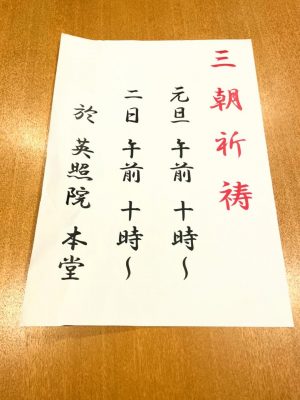 三朝祈祷
元旦 午前 十時〜
二日 午前 十時〜
於 英照院 本堂